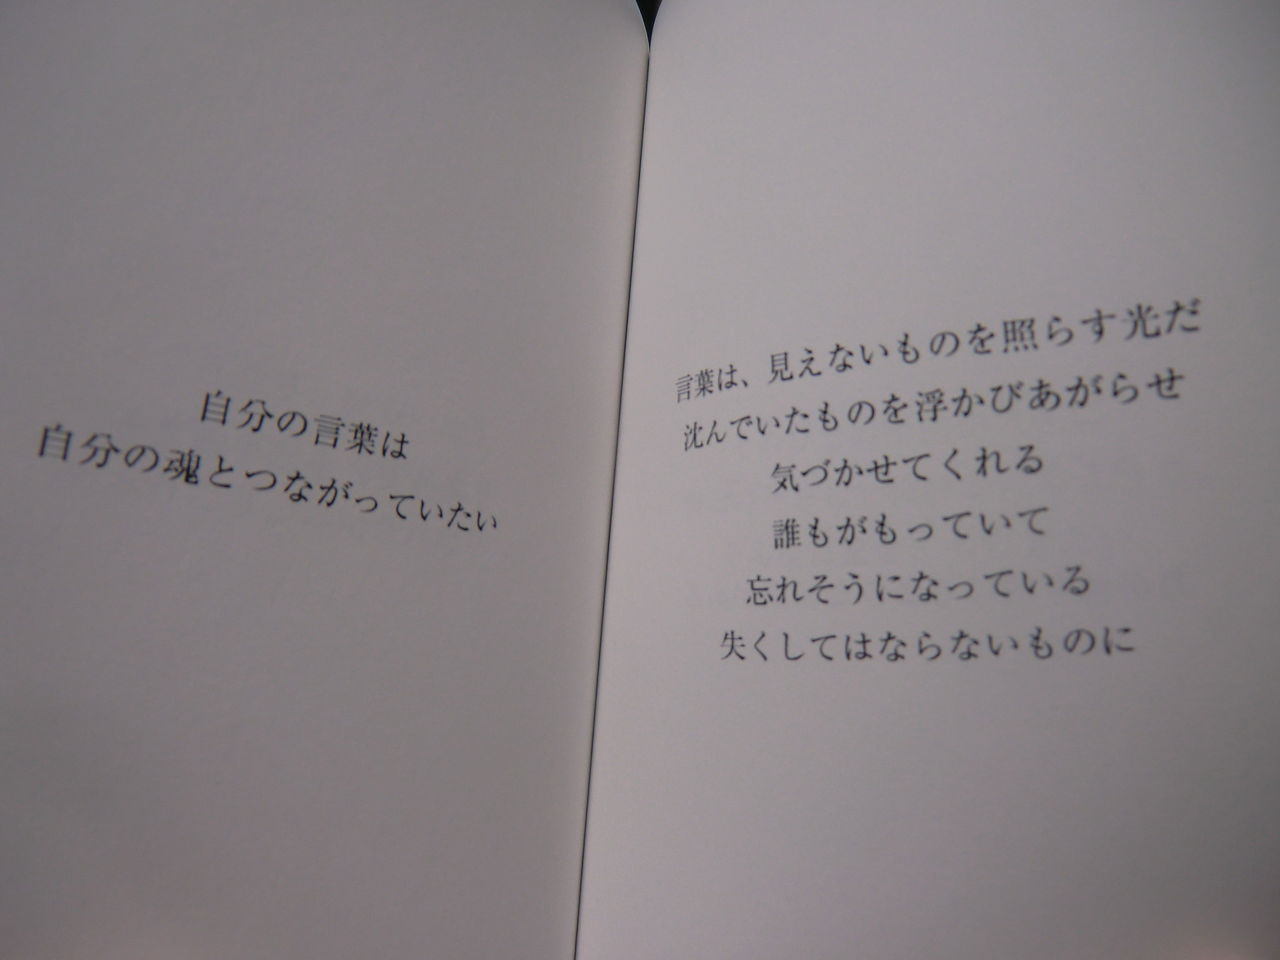 自分の言葉は
自分の魂とつながっていたい
言葉は、見えないものを照らす光だ
沈んでいたものを浮かびあがらせ
気づかせてくれる
誰もがもっていて
忘れそうになっている
失くしてはならないものに